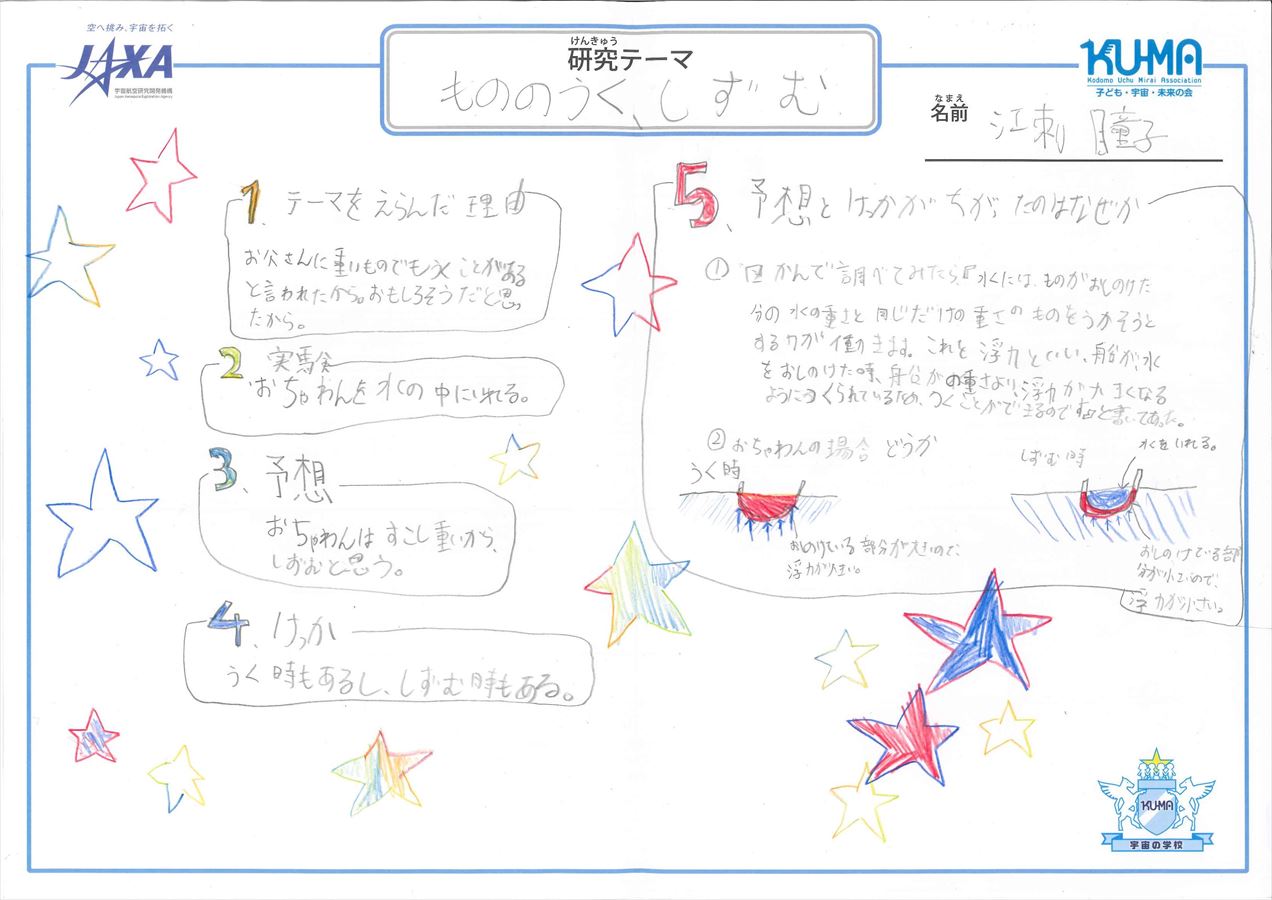 空へ挑み、宇宙を拓く
JAXA
宇宙航空研究開発機構
Japan Aerospace Exploration Agency
けんきゅう
研究テーマ
もののうく、しずむ
KU-MA
Kodomo Uchu Mirai Association
子ども・宇宙・未来の会
なまえ
名前
江刺 瞳子
1. テーマをえらんだ理由
お父さんに重いものでもうくことがある
と言われたから。おもしろそうだと思っ
たから。
2 実験
おちゃわんを水の中にいれる。
3、予想
おちゃわんはすこし重いから、
しずむと思う。
4、けっか
うく時もあるし、しずむ時もある。
5、予想とけっかがちがったのはなぜか
① 図かんで調べてみたら、『水には、ものがおしのけた
分の水の重さと同じだけの重さのものをうかそうと
する力が働きます。これを浮力といい、船が、水
をおしのけた時、船分の重さより、浮力が大きくなる
ようにつくられているため、うくことができるのです』と書いてあった。
② おちゃわんの場合どうか
うく時
おしのけている部分が大きいので、
浮力が大きい。
しずむ時
水をいれる。
おしのけている部
分が小さいので、
浮力が小さい。
KU-MA
宇宙の学校